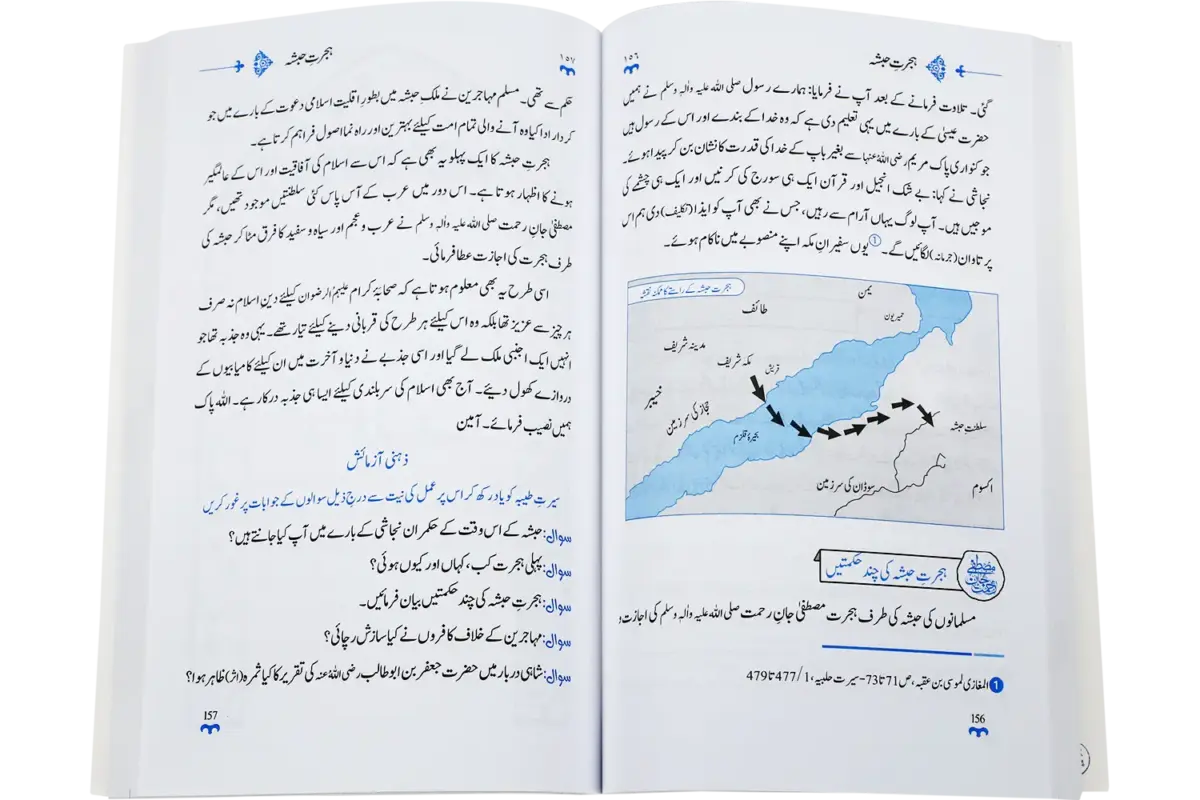 ہجرتِ حبشہ
۱۵۶
گئی۔ تلاوت فرمانے کے بعد آپ نے فرمایا: ہمارے رسول صلی اللہ علیہ واٰلہٖ وسلم نے ہمیں
حضرت عیسیٰ کے بارے میں یہی تعلیم دی ہے کہ وہ خدا کے بندے اور اس کے رسول ہیں
جو کنواری پاک مریم رضی اللہ عنہا سے بغیر باپ کے خدا کی قدرت کا نشان بن کر پیدا ہوئے۔
نجاشی نے کہا: بے شک انجیل اور قرآن ایک ہی سورج کی کرنیں اور ایک ہی چشمے کی
موجیں ہیں۔ آپ لوگ یہاں آرام سے رہیں، جس نے بھی آپ کو ایذا (تکلیف) دی ہم اس
پر تاوان (جرمانہ) لگائیں گے۔ ① یوں سفیرانِ مکہ اپنے منصوبے میں ناکام ہوئے۔
ہجرتِ حبشہ کے راستے کا ممکنہ نقشہ
یمن
طائف
حمیریون
مدینہ شریف
مکہ شریف
قریش
خیبر
حجاز کی سرزمین
بحیرۂ قلزم
سلطنتِ حبشہ
سوڈان کی سرزمین
اکسوم
ہجرتِ حبشہ کی چند حکمتیں
مسلمانوں کی حبشہ کی طرف ہجرت مصطفیٰ جانِ رحمت صلی اللہ علیہ واٰلہٖ وسلم کی اجازت و
① المغازی لموسی بن عقبہ، ص71تا73-سیرت حلبیہ، 1/477تا479
156
ہجرتِ حبشہ
۱۵۷
حکم سے تھی۔ مسلم مہاجرین نے ملکِ حبشہ میں بطورِ اقلیت اسلامی دعوت کے بارے میں جو
کردار ادا کیا وہ آنے والی تمام امت کیلئے بہترین اور راہ نما اصول فراہم کرتا ہے۔
ہجرتِ حبشہ کا ایک پہلو یہ بھی ہے کہ اس سے اسلام کی آفاقیت اور اس کے عالمگیر
ہونے کا اظہار ہوتا ہے۔ اس دور میں عرب کے آس پاس کئی سلطنتیں موجود تھیں، مگر
مصطفیٰ جانِ رحمت صلی اللہ علیہ واٰلہٖ وسلم نے عرب و عجم اور سیاہ و سفید کا فرق مٹا کر حبشہ کی
طرف ہجرت کی اجازت عطا فرمائی۔
اسی طرح یہ بھی معلوم ہوتا ہے کہ صحابۂ کرام علیہمُ الرضوان کیلئے دینِ اسلام نہ صرف
ہر چیز سے عزیز تھا بلکہ وہ اس کیلئے ہر طرح کی قربانی دینے کیلئے تیار تھے۔ یہی وہ جذبہ تھا جو
انہیں ایک اجنبی ملک لے گیا اور اسی جذبے نے دنیا و آخرت میں ان کیلئے کامیابیوں کے
دروازے کھول دیئے۔ آج بھی اسلام کی سربلندی کیلئے ایسا ہی جذبہ درکار ہے۔ اللہ پاک
ہمیں نصیب فرمائے۔ آمین
ذہنی آزمائش
سیرتِ طیبہ کو یاد رکھ کر اس پر عمل کی نیت سے درج ذیل سوالوں کے جوابات پر غور کریں
سوال: حبشہ کے اس وقت کے حکمران نجاشی کے بارے میں آپ کیا جانتے ہیں؟
سوال: پہلی ہجرت کب، کہاں اور کیوں ہوئی؟
سوال: ہجرتِ حبشہ کی چند حکمتیں بیان فرمائیں۔
سوال: مہاجرین کے خلاف کافروں نے کیا سازش رچائی؟
سوال: شاہی دربار میں حضرت جعفر بن ابو طالب رضی اللہ عنہ کی تقریر کا کیا ثمرہ (اثر) ظاہر ہوا؟
157